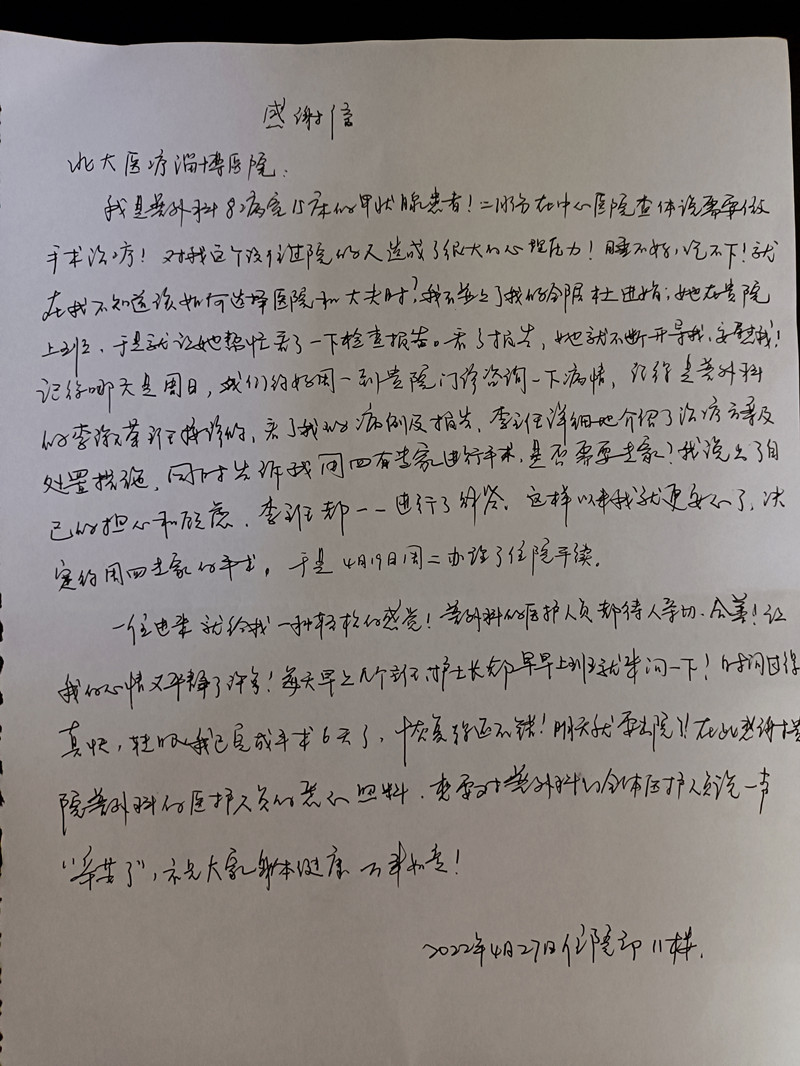 感谢信
北大医疗淄博医院：
我是普外科8病室15床的甲状腺患者！二月份在中心医院查体说需要做
手术治疗！对我这个没住过院的人造成了很大的心理压力！睡不好，吃不下！就
在我不知道该如何选择医院和大夫时？我不碰上了我的邻居杜进娟；她在贵院
上班、于是就让她帮忙看了一下检查报告。看了报告，她就不断开导我，安慰我！
记得哪天是周日，我们约好周一到贵院门诊咨询一下病情，记得是普外科
的李主任接诊的，看了我的病例及报告，李主任详细地介绍了治疗方案及
处置措施，同时告诉我周四有专家进行手术，是否需要专家？我说出了自
己的担心和顾虑，李主任都一一进行了解答。这样以来我就更安心了，决
定约周四专家的手术。于是4月19日周二办理了住院手续。
一住进来就给我一种轻松的感觉！普外科的医护人员都待人亲切、和善！让
我的心情又平静了许多！每天早上几个主任、护士长都早早上班就来问一下！时间过得
真快，转眼我已完成手术6天了，恢复得还不错！明天就要出院了！在此感谢贵
院普外科的医护人员的悉心照料，更要对普外科的全体医护人员说一声
“辛苦了”，祝大家身体健康 万事如意！
2022年4月27日住院部11楼.